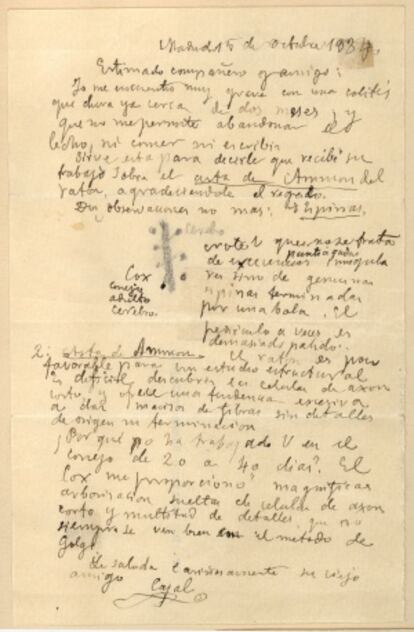 Madrid 15 de octubre 1934.
Estimado compañero y amigo:
Yo me encuentro muy grave con una colitis
que dura ya cerca de dos meses, y
que no me permite abandonar el
lecho, ni comer ni escribir
Sirve esta para decirle que recibí su
trabajo sobre el asta de Ammon del
ratón, agradeciendole el regalo.
Dos observaciones no mas: 1 Espinas.
Cerebro
Cox
conejo
adulto
cerebro.
note V que no se trata
de excrecencias puntiagudas
sino de genuinas
espinas terminadas
por una bola. El
pediculo a veces es
demasiado palido.
2. Asta de Ammon. El ratón es poco
favorable para un estudio estructural
Es dificil descubrir las celulas de axon
corto, y ofrece una tendencia excesiva
a dar macizos de fibras sin detalles
de origen ni terminacion
¿Por qué no ha trabajado V en el
conejo de 20 a 40 dias? El
Cox me proporcionó magnificas
arborizacion sueltas de celulas de axon
corto y multitud de detalles que no
siempre se ven bien con el metodo de
Golgi
Le saluda cariñosamente su viejo
amigo Cajal